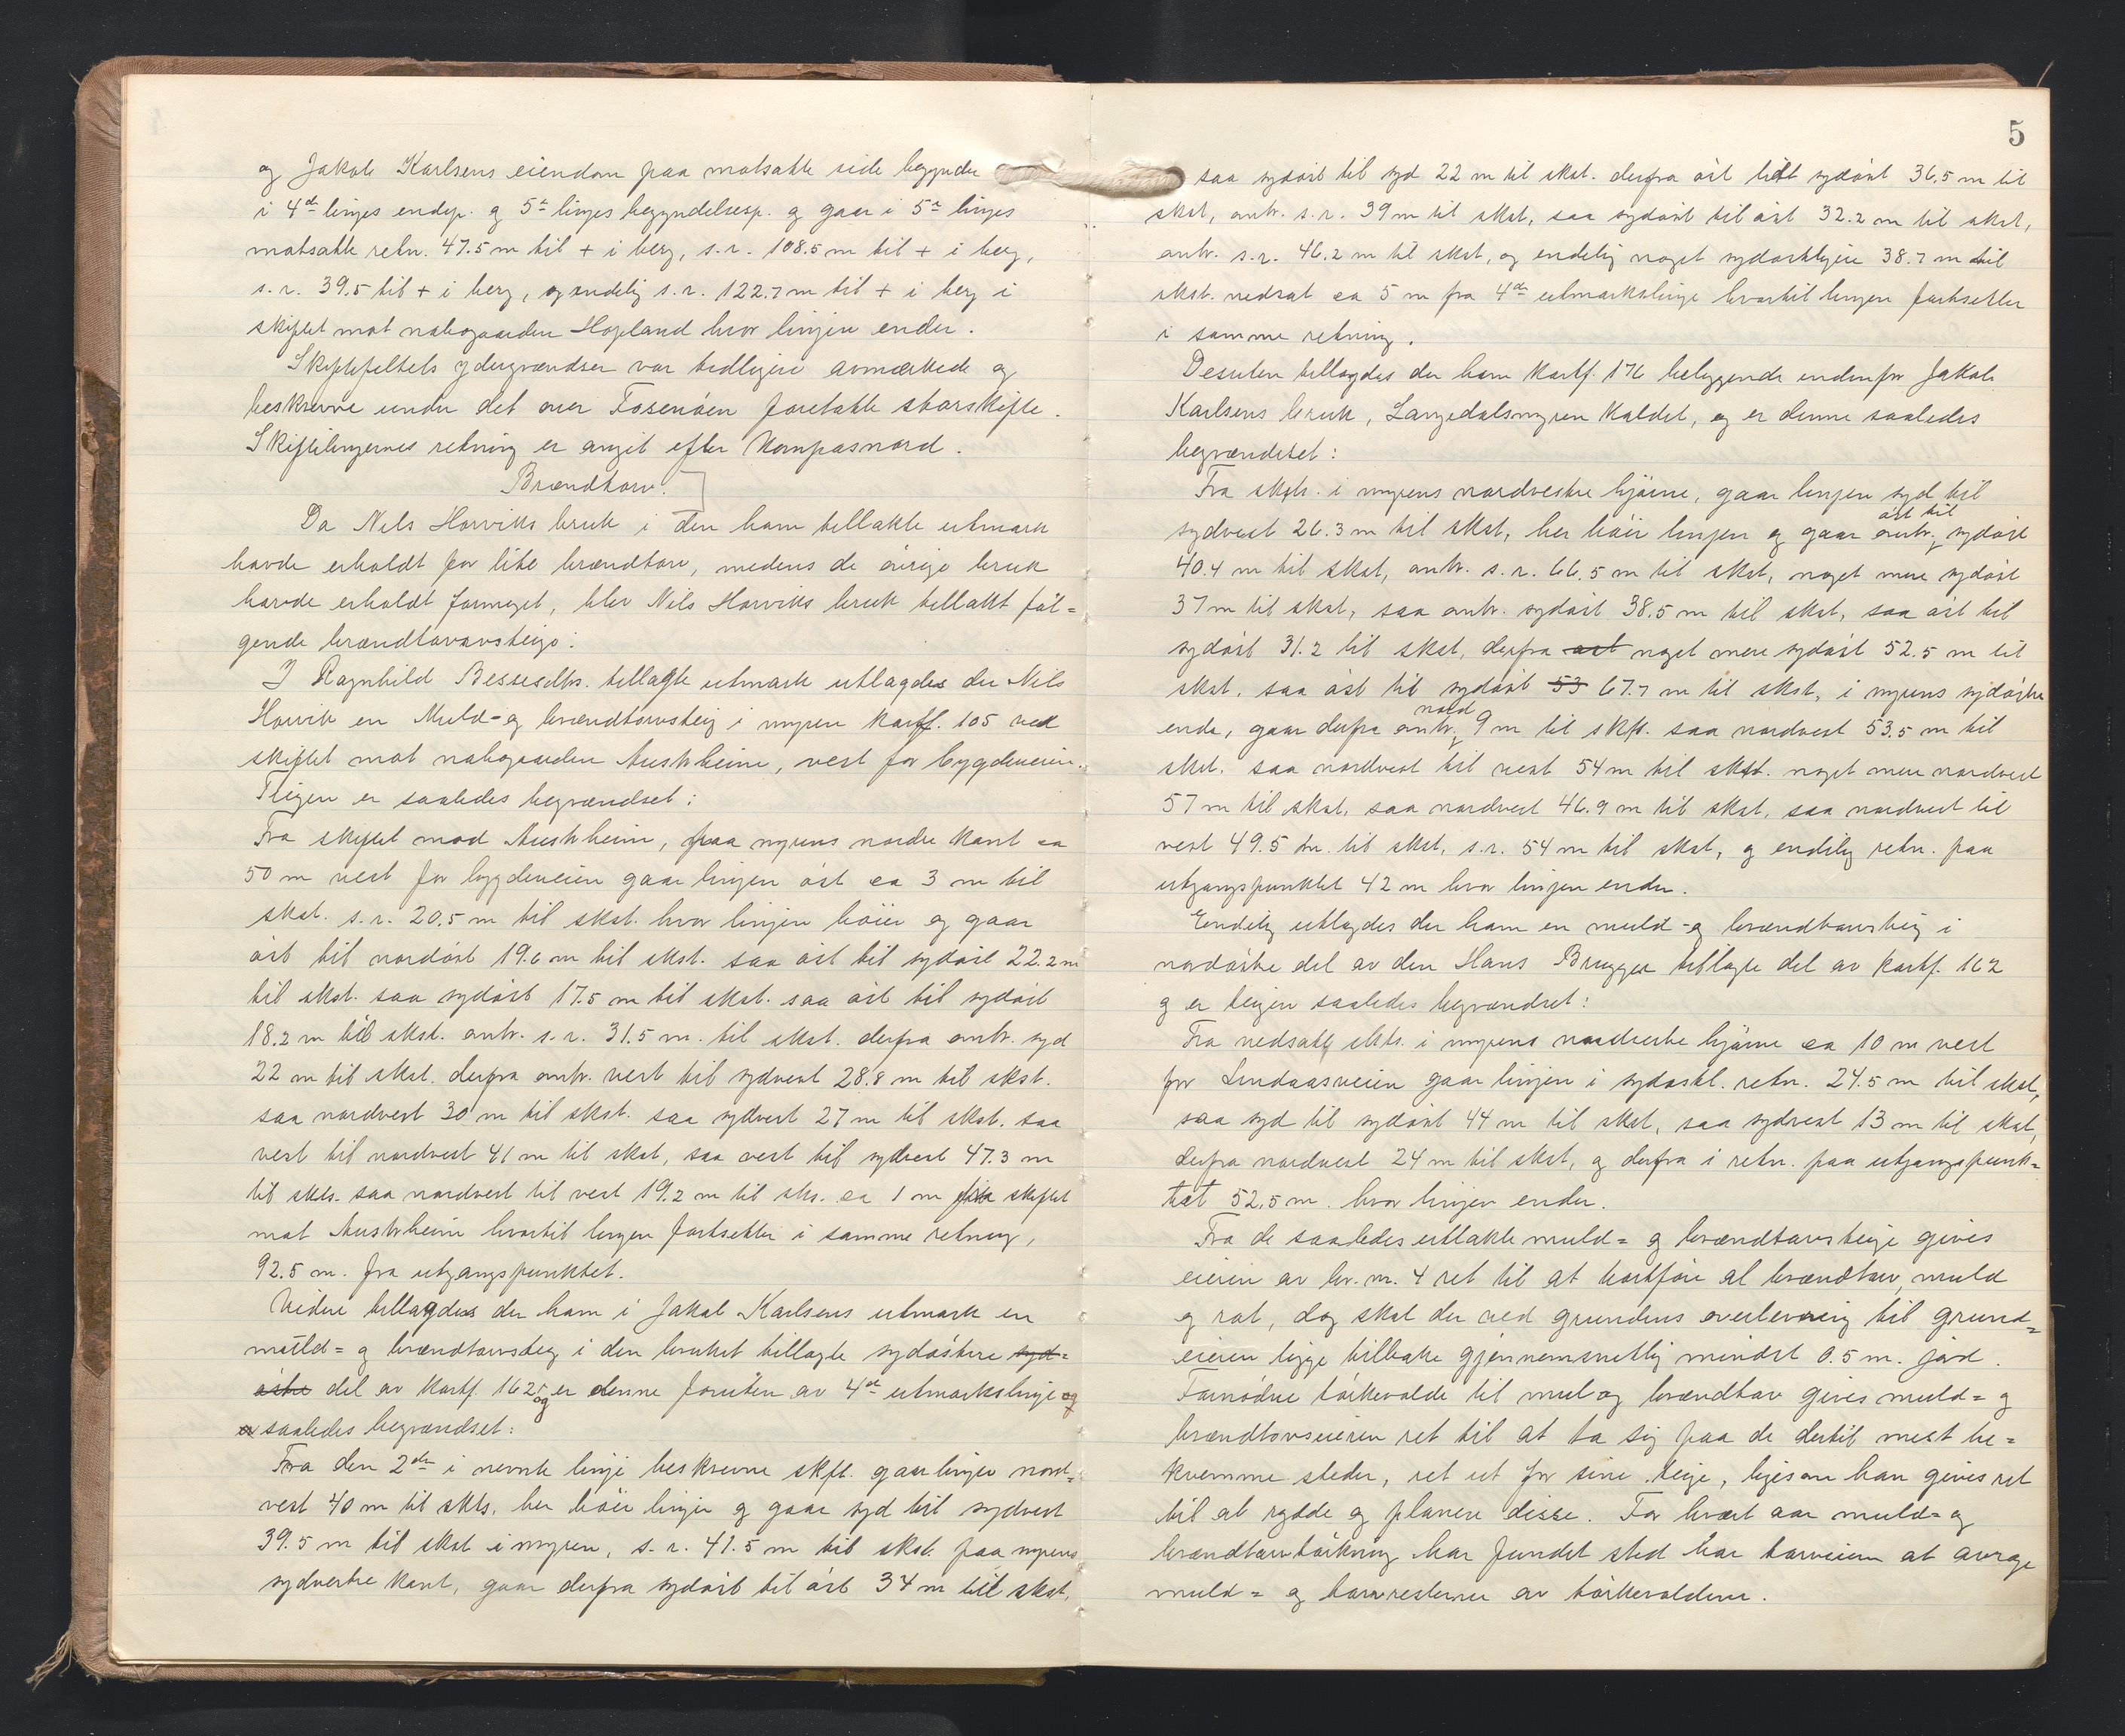 og Jakob Karlsens eiendom paa motsatte side begynder
i 4de linjes endep. og 5te linjes begyndelsesp. og gaar i 5te linjes
motsatte retn. 47.5 m til + i berg, s.r. 108.5 m til + i berg,
s.r. 39.5 til + i berg, og endelig s.r. 122.7 m til + i berg i
skiftet mot nabogaarden Hopland hvor linjen ender.
Skiftefeltets ydergrændser var tidligere avmærkede og
beskrevne under det over Fosenøen foretatte storskifte.
Skiftelinjernes retning er angit efter Kompasnord.
Brændtorv.
Da Nils Horviks bruk i den ham tillakte utmark
havde erholdt for lite brændtorv, medens de øvrige bruk
havde erholdt formeget, blev Nils Horviks bruk tillakt føl=
gende brændtorvsteige:
I Ragnhild Bessesdtr. tillagte utmark utlagdes der Nils
Horvik en Muld- og brændtorvsteig i myren kartf. 105 ved
skiftet mot nabogaarden Austrheim, vest for bygdeveien.
Teigen er saaledes begrændset:
Fra skiftet mod Austrheim, paa myrens nordre kant ca
50 m vest for bygdeveien gaar linjen øst ca 3 m til
skst. s.r. 20.5 m til skst. hvor linjen bøier og gaar
øst til nordøst 19.6 m til skst. saa øst til sydøst 22.2 m
til skst. saa sydøst 17.5 m til skst. saa øst til sydøst
18.2 m til skst. omtr. s.r. 31.5 m. til skst. derfra omtr. syd
22 m til skst. derfra omtr. vest til sydvest 28.8 m til skst.
saa nordvest 30 m til skst. saa sydvest 27 m til skst. saa
vest til nordvest 41 m til skst, saa vest til sydvest 47.3 m
til skts. saa nordvest til vest 19.2 m til sks. ca 1 m fra skiftet
mot Austrheim hvortil linjen fortsetter i samme retning,
92.5 m. fra utgangspunktet.
Videre tillagdes der ham i Jakob Karlsens utmark en
muld= og brændtorvsteig i den bruket tillagte sydøstere syd=
østre del av kartf. 162 og er denne foruten av 4de utmarkslinje og
er saaledes begrændset:
Fra den 2den i nevnte linje beskrevne skft. gaar linjen nord=
vest 40 m til skts, her bøier linjen og gaar syd til sydvest
39.5 m til skst i myren, s.r. 41.5 m til skst. paa myrens
sydvestre kant, gaar derfra sydøst til øst 34 m til skst,
5
saa sydøst til syd 22 m til skst. derfra øst litt sydøst 36.5 m til
skst, omtr. s.r. 39 m til skst, saa sydøst til øst 32.2 m til skst,
omtr. s.r. 46.2 m til skst, og endelig noget sydøstligere 38.7 m til
skst. nedsat ca 5 m fra 4de utmarkslinje hvortil linjen fortsetter
i samme retning.
Desuten tillagdes der ham kartf. 176 beliggende indenfor Jakob
Karlsens bruk, Langedalsmyren kaldet, og er denne saaledes
begrændset:
Fra skts. i myrens nordvestre hjørne, gaar linjen syd til
sydvest 26.3 m til skst, her bøier linjen og gaar omtr. øst til sydøst
40.4 m til skst, omtr. s.r. 66.5 m til skst, noget mere sydøst
37 m til skst, saa omtr. sydøst 38.5 m til skst, saa øst til
sydøst 31.2 til skst, derfra øst noget mere sydøst 52.5 m til
skst. saa øst til sydøst 53 67.7 m til skst, i myrens sydøstre
ende, gaar derfra omtr. nord 9 m til skft. saa nordvest 53.5 m til
skst. saa nordvest til vest 54 m til skst. noget mere nordvest
57 m til skst, saa nordvest 46.9 m til skst, saa nordvest til
vest 49.5 m. til skst, s.r. 54 m til skst, og endelig retn. paa
utgangspunktet 42 m hvor linjen ender.
Endelig utlagdes der ham en muld- og brændtorvsteig i
nordøstre del av den Hans Brugger tillagte del av kartf. 162
og er teigen saaledes begrændset:
Fra nedsatte skts. i myrens nordvestre hjørne ca 10 m vest
for Lindaasveien gaar linjen i sydøstl. retn. 24.5 m til skst,
saa syd til sydøst 44 m til skst, saa sydvest 13 m til skst,
derfra nordvest 24 m til skst, og derfra i retn. paa utgangspunk=
tet 52.5 m. hvor linjen ender.
Fra de saaledes utlakte muld= og brændtorvsteige gives
eieren av br. nr. 4 ret til at bortføre al brændtorv, muld
og rot, dog skal der ved grundens overlevering til grund=
eieren ligge tilbake gjennemsnitlig mindst 0.5 m. jord.
Fornødne tørkevolde til mul og brændtov gives muld= og
brændtorvseieren ret til at ta sig paa de dertil mest be=
kvemme steder, ret ut for sine teige, likesom han gives ret
til at rydde og planere disse. For hvert aar muld= og
brændtorvtørkning har fundet sted har torveieren at avrage
muld= og torvresterne av tørkevoldene.